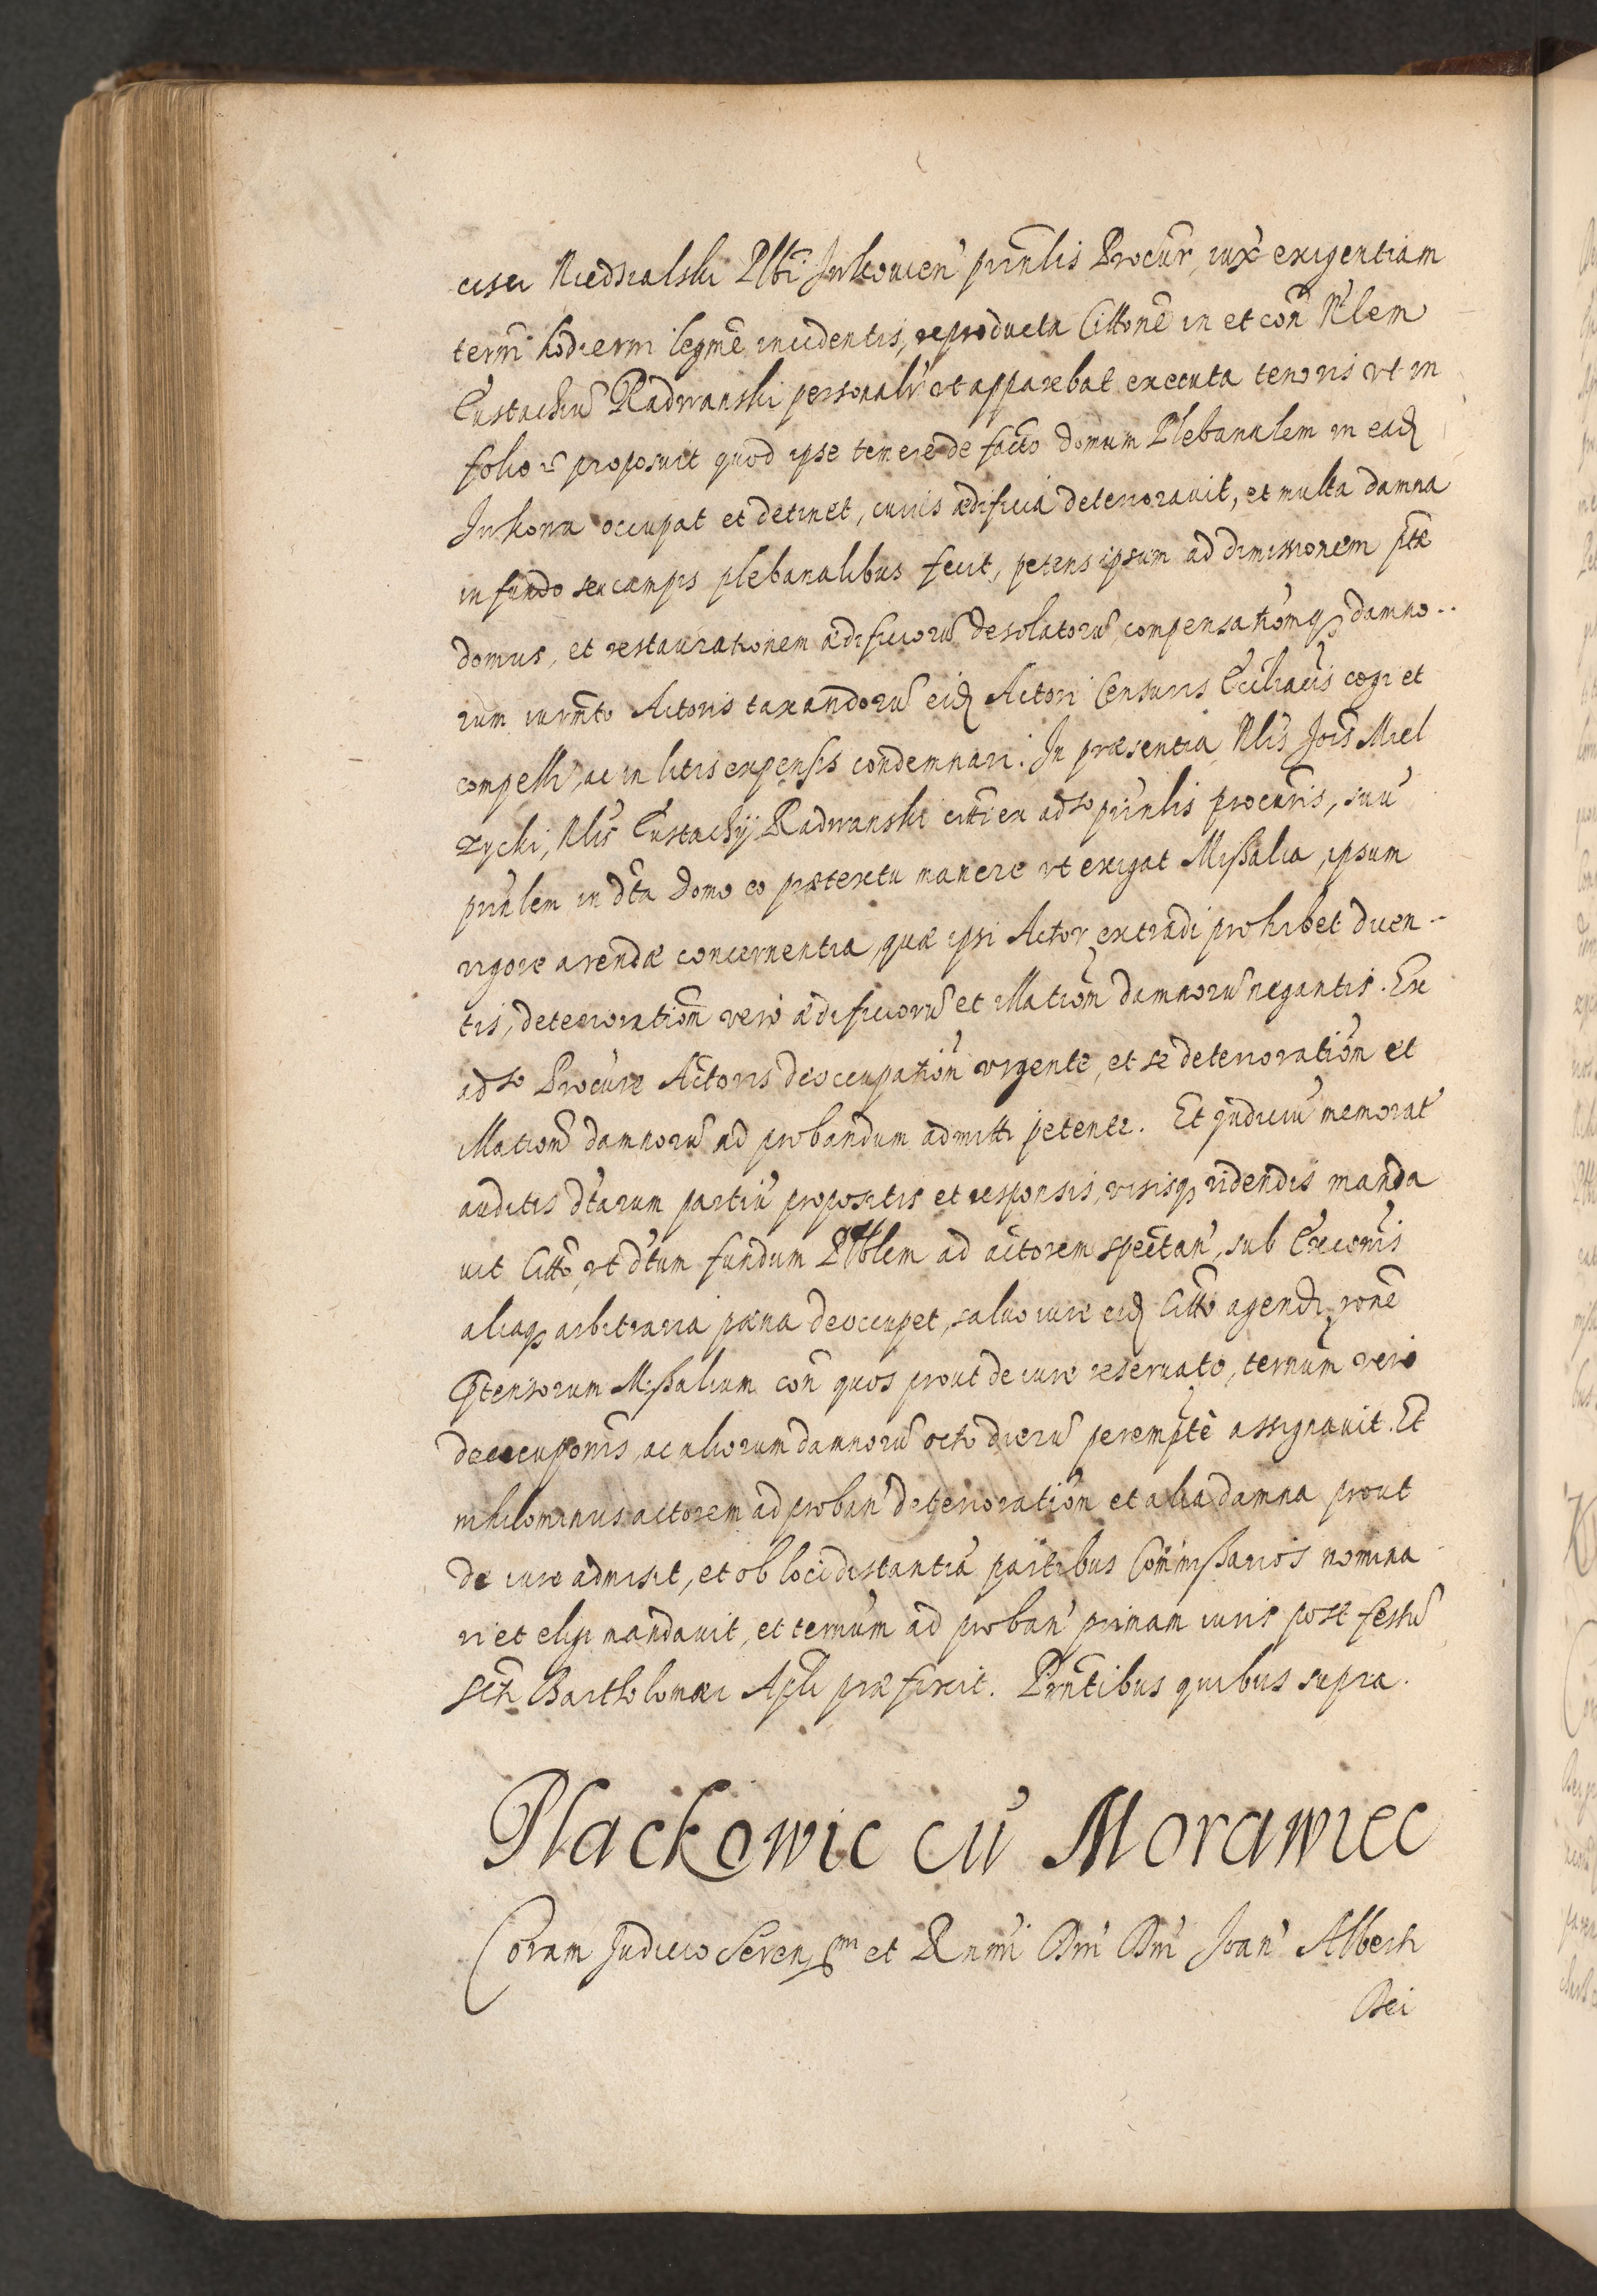 cisci Niedzialski Plbi Jurkovien' prinlis Procur, iuxa exigentiam
termi hodierni legme incidentis, reproducta Cittone in et con Nlem
Eustachiu Radwanski personalr ut apparebat executa tenoris vt in
folio proposuit quod ipse temere de facto domum Plebanalem in ead
Jurkowa occupat et detinet, cuius ædificia deteriorauit, et multa damna
in fundo seu campis plebanalibus fecit, petens ipsum ad dimissionem ptæ
domus, et restaurationem ædificioru desolatoru, compensationq damno-
rum iurmto Actoris taxandoru eid Actori Censuris Ecclacis cogi et
compelli, ac in litis expensis condemnari. In præsentia Nlis Jois Miel
zycki, Nlis Eustachij Radwanski citi ex adso prinlis procuris, suu
prinlem in dta domo eo prætextu manere vt exigat Missalia, ipsum
vigore arendæ concernentia, quæ ipsi Actor extradi prohibet dicen-
tis, deterioration vero ædificioru et illation damnoru negantis. Ex
adso Procure Actoris deoccupation vrgente, et se deterioration et
illation damnoru ad probandum admitti petente. Et Judiciu memorat
auditis dtarum partiu propositis et responsis, visisq videndis manda
uit Citto, vt dtum fundum Plblem ad actorem spectan', sub Excconis
aliaq arbitraria pæna deoccupet, saluo iure eid Citto agendi rone
Prtensorum Missalium con quos prout de iure reseruato, ternum vero
deoccuponis, ac aliorum damnoru octo dieru perempte assignauit. Et
nihilominus actorem ad proban' deterioration et alia damna prout
de iure admisit, et ob loci distantia partibus Commissarios nomina
ri et eligi mandauit, et ternum ad proban' primam iuris post festu
Scti Bartholomæi Apli præfixit. Prntibus quibus supra.
Plackowic cu Morawiec
Coram Judicio Serenssmi et Rnmi Dni Dni Joan' Alberti
Dei